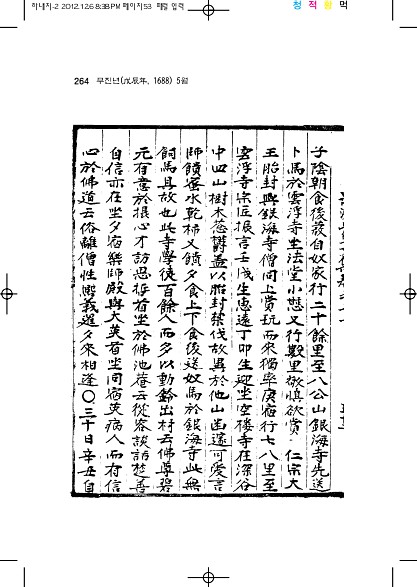 하내지-2 2012.12.6 8:38 PM 페이지53 패컴 입력
청 적 황 먹
264 무진년(戊辰年, 1688) 5월
子陰朝食後發自奴家行二十餘里至八公山銀海寺先送
卜馬於雲浮寺坐法堂小憩又行數里
仁宗大
王胎封與銀海寺僧同上賞玩而來獨宿行七八里至
雲浮寺宗匠振言壬戌生惠遠丁卯生迎坐空樓寺在深谷
中四山樹木葱鬱盖以胎封禁伐故異於他山幽邃可愛言
師饋蜜水乾柿又饋夕食上下食後送奴馬於銀海寺此無
飼馬且故也此寺學徒百餘人而多以動鈴出村云佛尊碧
元有意於操心才訪思哲首坐於佛池菴云從容談話楚善
自信亦在坐夕宿藥師殿與大英首坐同宿英病人而有信
心於佛道云俗離僧性熙義還夕來相逢〇三十日辛丑自